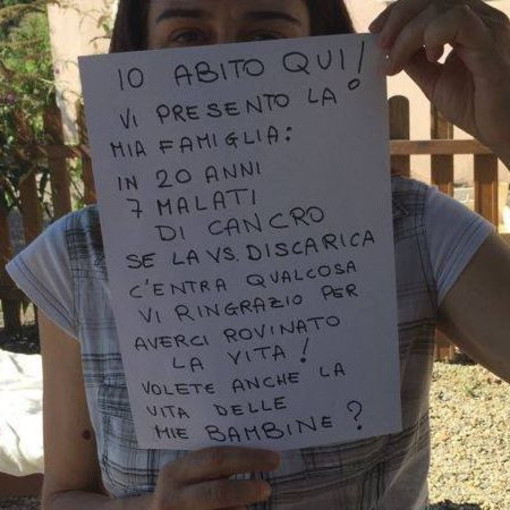 IO ABITO QUI!
VI PRESENTO LA
MIA FAMIGLIA:
IN 20 ANNI
7 MALATI
DI CANCRO
SE LA VS. DISCARICA
C'ENTRA QUALCOSA
VI RINGRAZIO PER
AVERCI ROVINATO
LA VITA!
VOLETE ANCHE LA
VITA DELLE
MIE BAMBINE?